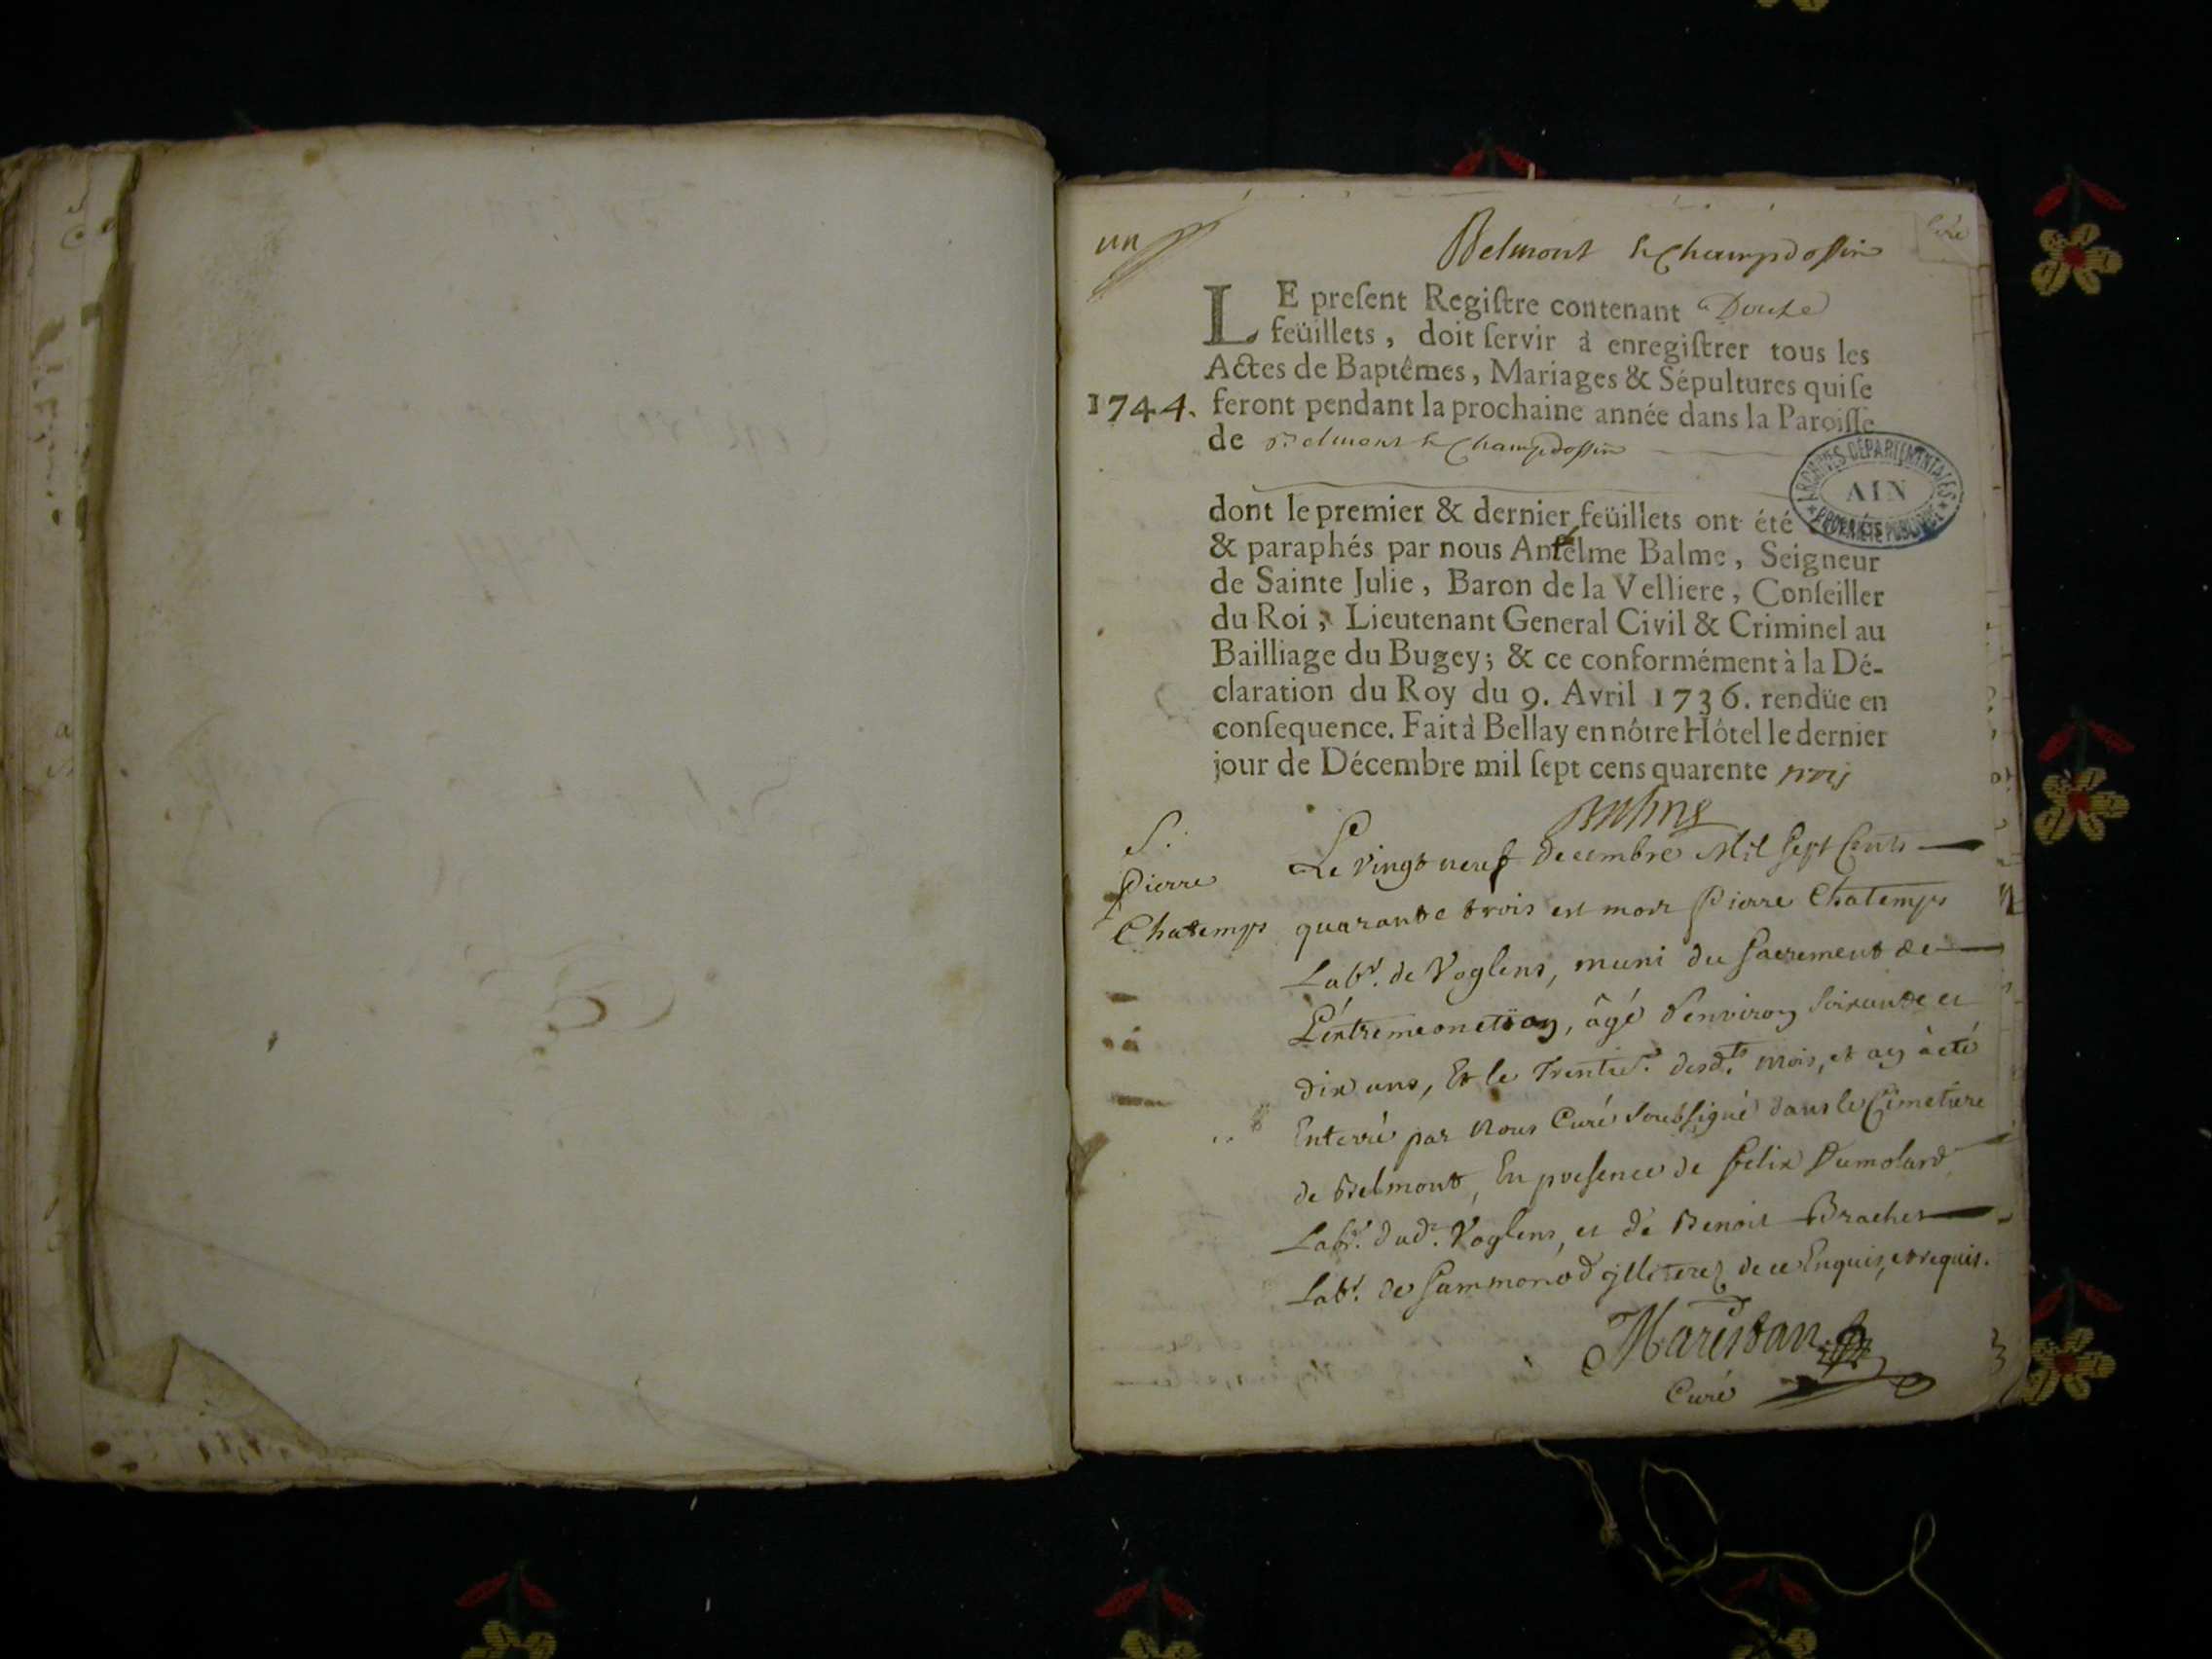 un
Belmont & Champdossin
LE preſent Regiſtre contenant Douze
feüillets, doit ſervir à enregiſtrer tous les
Actes de Baptêmes, Mariages & Sépultures qui ſe
1744. feront pendant la prochaine année dans la Paroiſſe
de Belmont & Champdossin
ARCHIVES DÉPARTEMENTALES
AIN
PROPRIÉTÉ PUBLIQUE
dont le premier & dernier feüillets ont été
& paraphés par nous Antélme Balme, Seigneur
de Sainte Julie, Baron de la Velliere, Conſeiller
du Roi, Lieutenant General Civil & Criminel au
Bailliage du Bugey; & ce conformément à la Dé-
claration du Roy du 9. Avril 1736. rendüe en
conſequence. Fait à Bellay en nôtre Hôtel le dernier
jour de Décembre mil ſept cens quarente trois
Balme
S.
Pierre
Chatemps
Le vingt neuf decembre Mil Sept Cents
quarante trois est mort Pierre Chatemps
Labr. de Voglens, muni du Sacrement de
L'éntremeonctïon, âgé d'environ Soixante et
dix ans, Et le Trentie. desdts. mois, et an à eté
Enterré par Nous Curé Soubsigné dans le Cimetiere
de Belmont, En presence de Felix Dumolard
Labr. dud. Voglens, et de Benoit Brachet
Labr. de Sammonod illiterez de ce Enquis, et requis.
Marestan
Curé